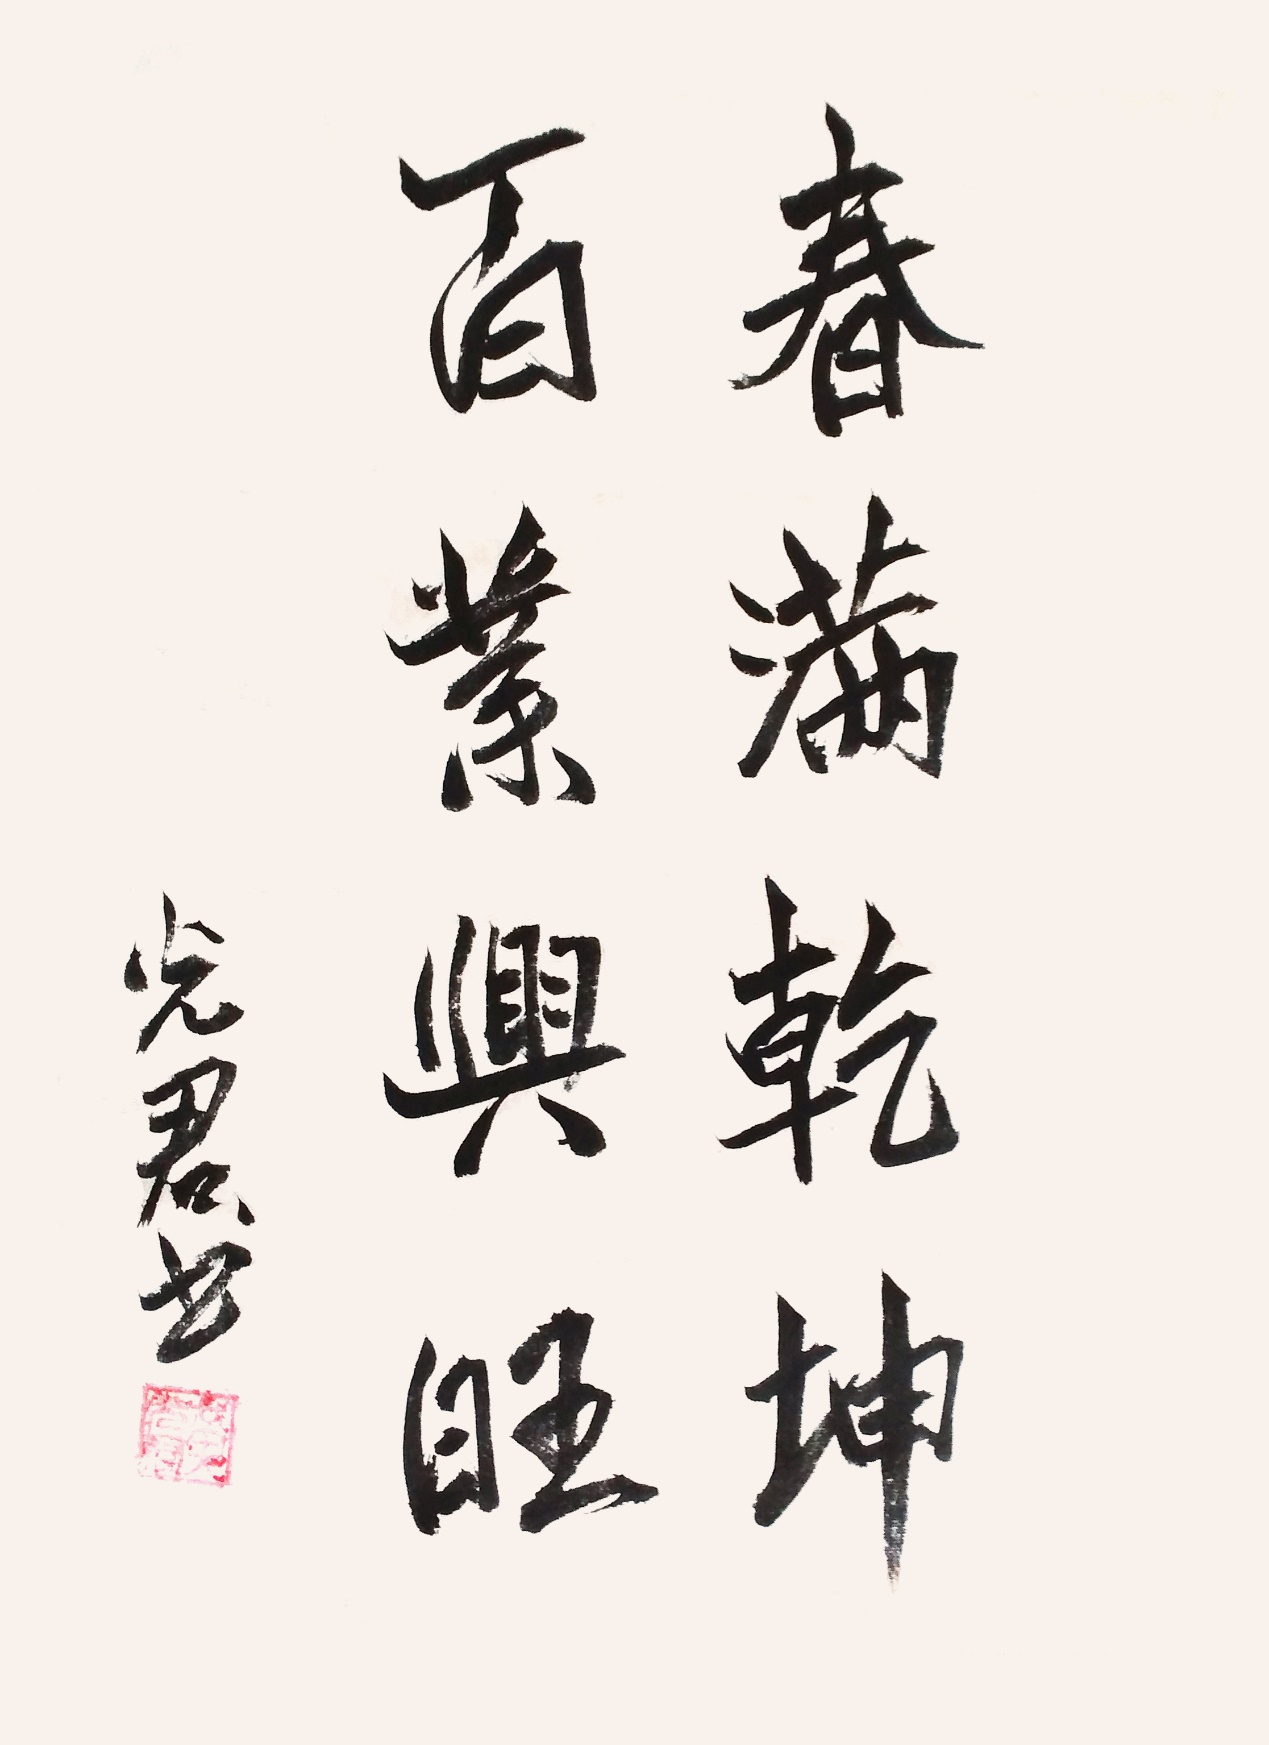 春满乾坤
百業興旺
光君书